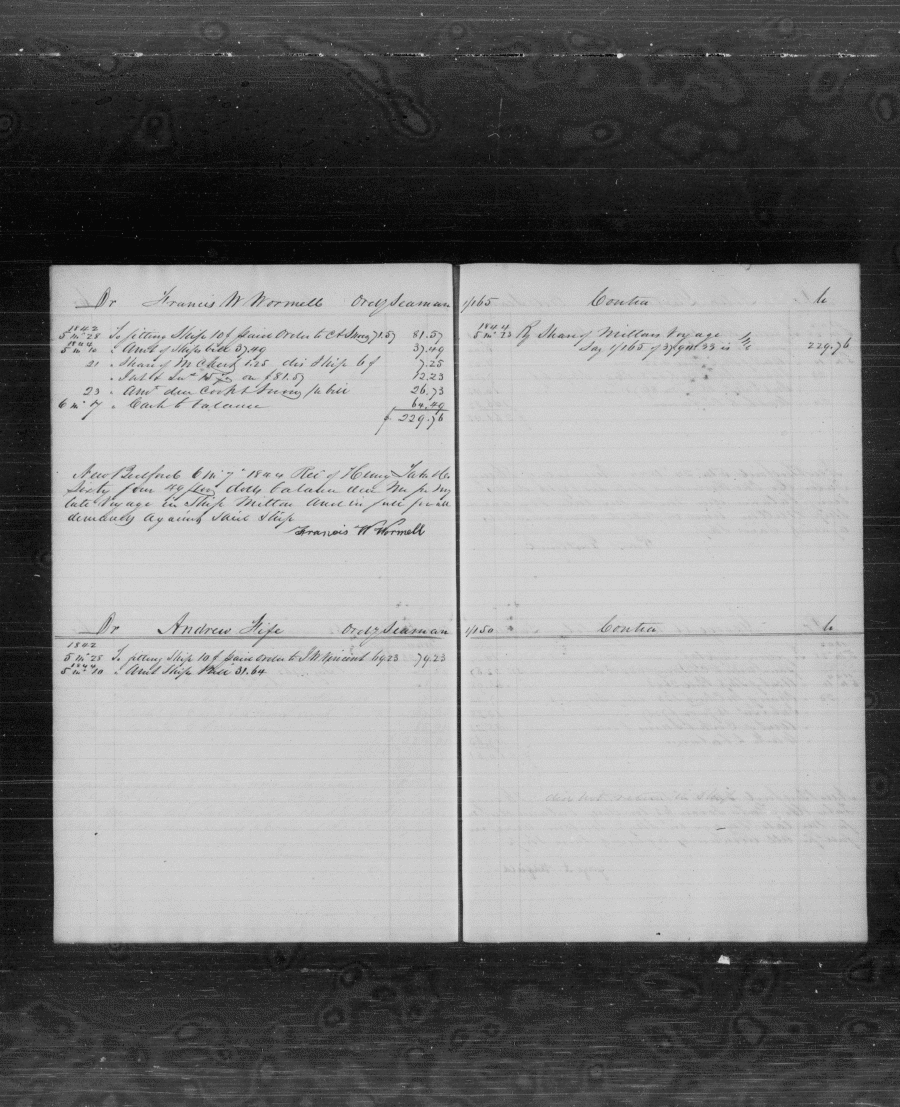 Dr Francis W Wormell Ordy Seaman 1/165 Contra Cr
1842
5 mo 28 To fitting Ship 10 $ paid Order to C & Snow 71.57 81.57
1844
5 mo 10 " Amt of Ships bill 37.49 37.49
21 " Share of M Chest 1.25 dis Ship 6 $ 7.25
" Int & Ins 15 % on $81.57 12.23
23 " Amt due Cook & Snow pr bill 26.73
6 mo 7 " Cash to balance 64.49
$ 229.76
1844
5 mo 23 By Share of Miltons Voyage
Say 1/165 of 229.76
New Bedford 6 mo 7 1844 Rec of Henry Taber & Co
Sixty four 49/100 dolls balance due Me for My
late Voyage in Ship Milton and in full for all
demands against said Ship
Francis W Wormell
Dr Andrew Fife Ordy Seaman 1/150 Contra Cr
1842
5 mo 28 To fitting Ship 10 $ paid Order to J W Vincent 69.23 79.23
1844
5 mo 10 " Amt Ships bill 31.64